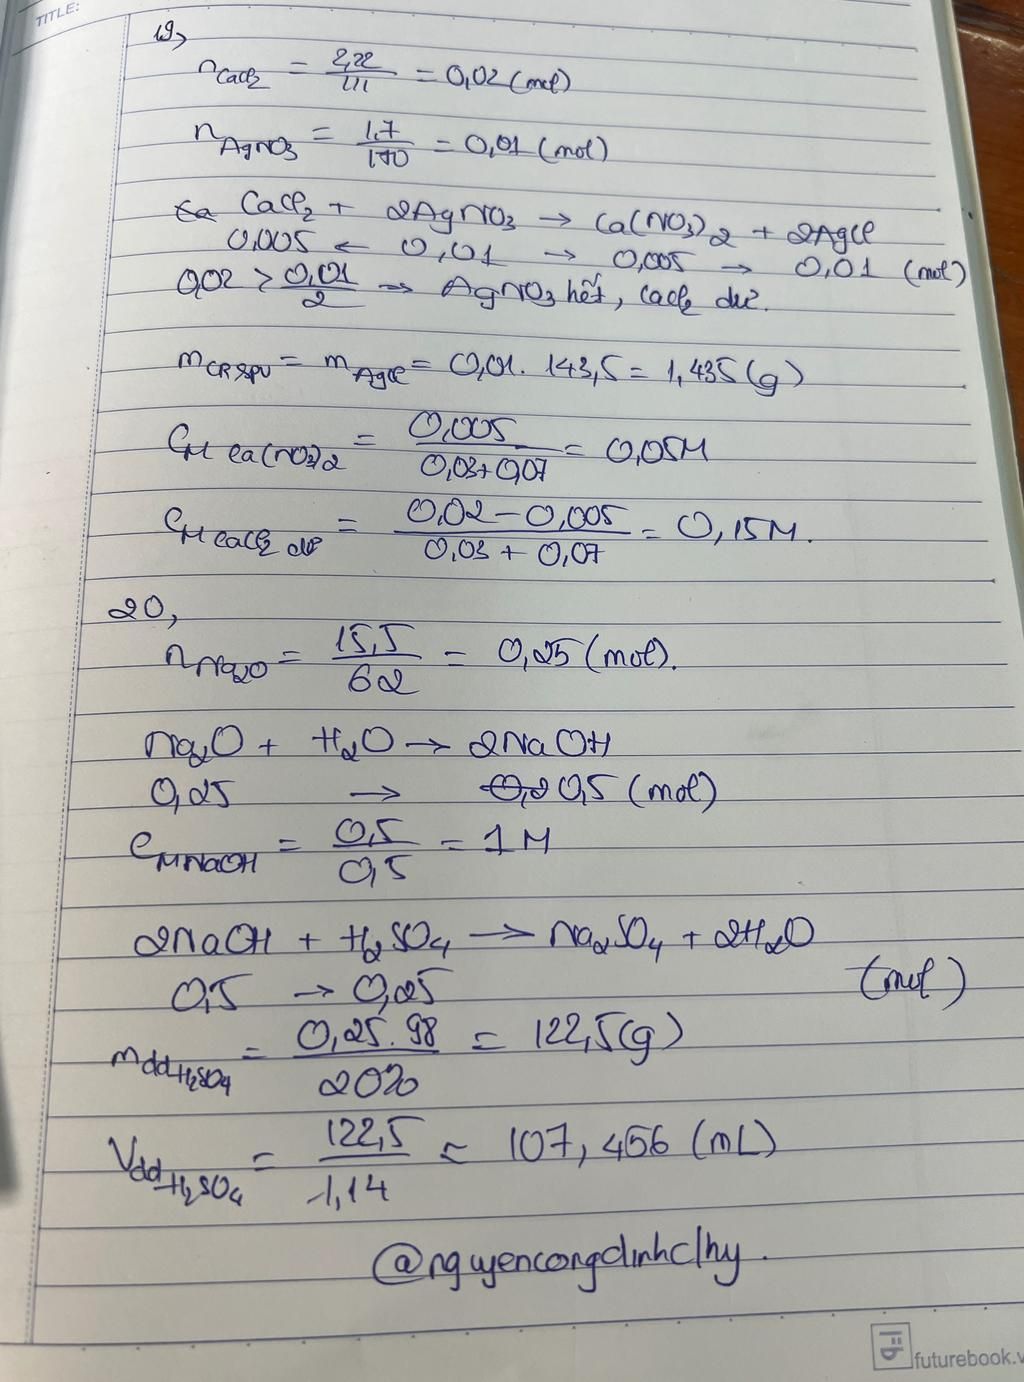 TITLE:
19,
nCaCl2 = 2,22/111 = 0,02 (mol)
nAgNO3 = 1,7/170 = 0,01 (mol)
CaCl2 + 2AgNO3 → Ca(NO3)2 + 2AgCl
0,005 ← 0,01 → 0,005 → 0,01 (mol)
0,02 > 0,01/2 → AgNO3 hết, CaCl2 dư.
mCRSPU = mAgCl = 0,01. 143,5 = 1,435 (g)
CM Ca(NO3)2 = 0,005/0,03+0,07 = 0,05M
CM CaCl2 dư = 0,02 - 0,005/0,03 + 0,07 = 0,15M.
20,
nNa2O = 15,5/62 = 0,25 (mol).
Na2O + H2O → 2NaOH
0,25 → 0,5 (mol)
CMNaOH = 0,5/0,5 = 1M
2NaOH + H2SO4 → Na2SO4 + 2H2O
0,5 → 0,25 (mol)
mddH2SO4 = 0,25.98/20% = 122,5 (g)
VddH2SO4 = 122,5/1,14 = 107,456 (mL)
@nguyencongdinhclhy.
futurebook.v